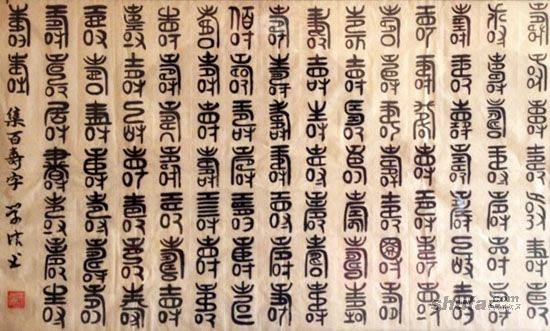 壽壽壽壽壽壽壽
壽壽壽壽壽壽壽
壽壽壽壽壽壽壽
壽壽壽壽壽壽壽
壽壽壽壽壽壽壽
壽壽壽壽壽壽壽
壽壽壽壽壽壽壽
壽壽壽壽壽壽壽
壽壽壽壽壽壽壽
壽壽壽壽壽壽壽
壽壽壽壽壽壽壽
壽壽壽壽壽壽壽
壽壽壽壽壽壽壽
壽壽壽壽壽壽壽
壽壽
集百寿字
shufa.com